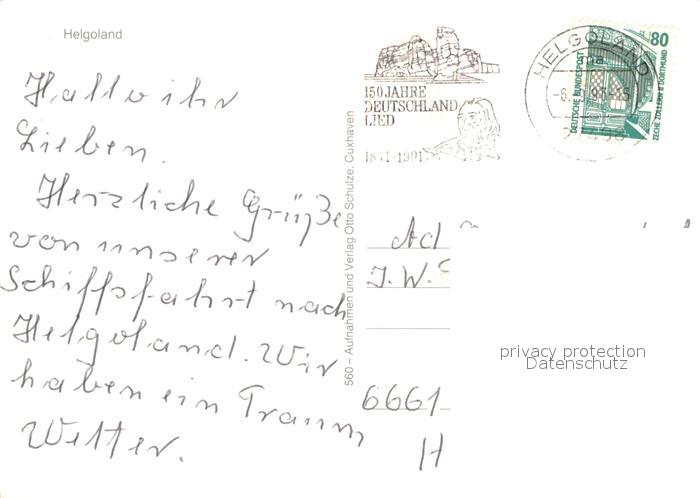 Helgoland
Hallo ihr
Lieben.
Herzliche Grüße
von unserer
Schiffsfahrt nach
Helgoland. Wir
haben ein Traum
Wetter.
560 – Aufnahmen und Verlag Otto Schulze, Cuxhaven
150 JAHRE
DEUTSCHLAND
LIED
1841-1991
HELGOLAND
80
DEUTSCHE BUNDESPOST
ZECHE ZOLLERN II DORTMUND
Ad
J.W.
6661
H
privacy protection
Datenschutz